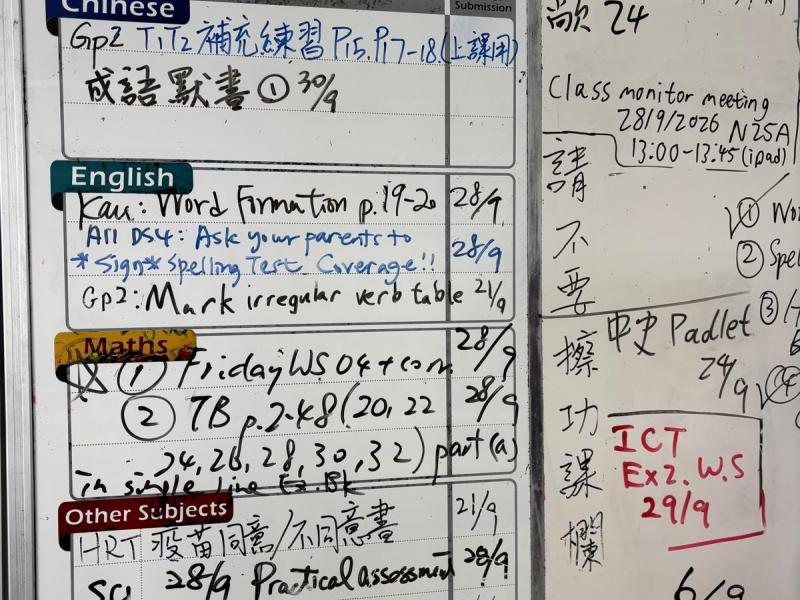 Chinese
Submission
Gp2 T1, T2 補充練習 P.15, P.17-18 (上課用)
成語默書① 30/9
English
Kau: Word Formation p.19-20 28/9
All DS4: Ask your parents to
*Sign* Spelling Test Coverage!! 28/9
Gp2: Mark irregular verb table 21/9
Maths
① Friday WS 04 + corr. 28/9
② TB p.2.48 (20, 22 28/9
24, 26, 28, 30, 32) part (a)
in single line Ex. Bk
Other Subjects
HRT 疫苗同意/不同意書 21/9
Sci 28/9 Practical assessment 28/9
24
Class monitor meeting
28/9/2026 N25A
13:00-13:45 (ipad)
請不要擦功課欄
①
②
③
④
中史 Padlet
24/9
ICT
Ex2. W.S
29/9
6/9